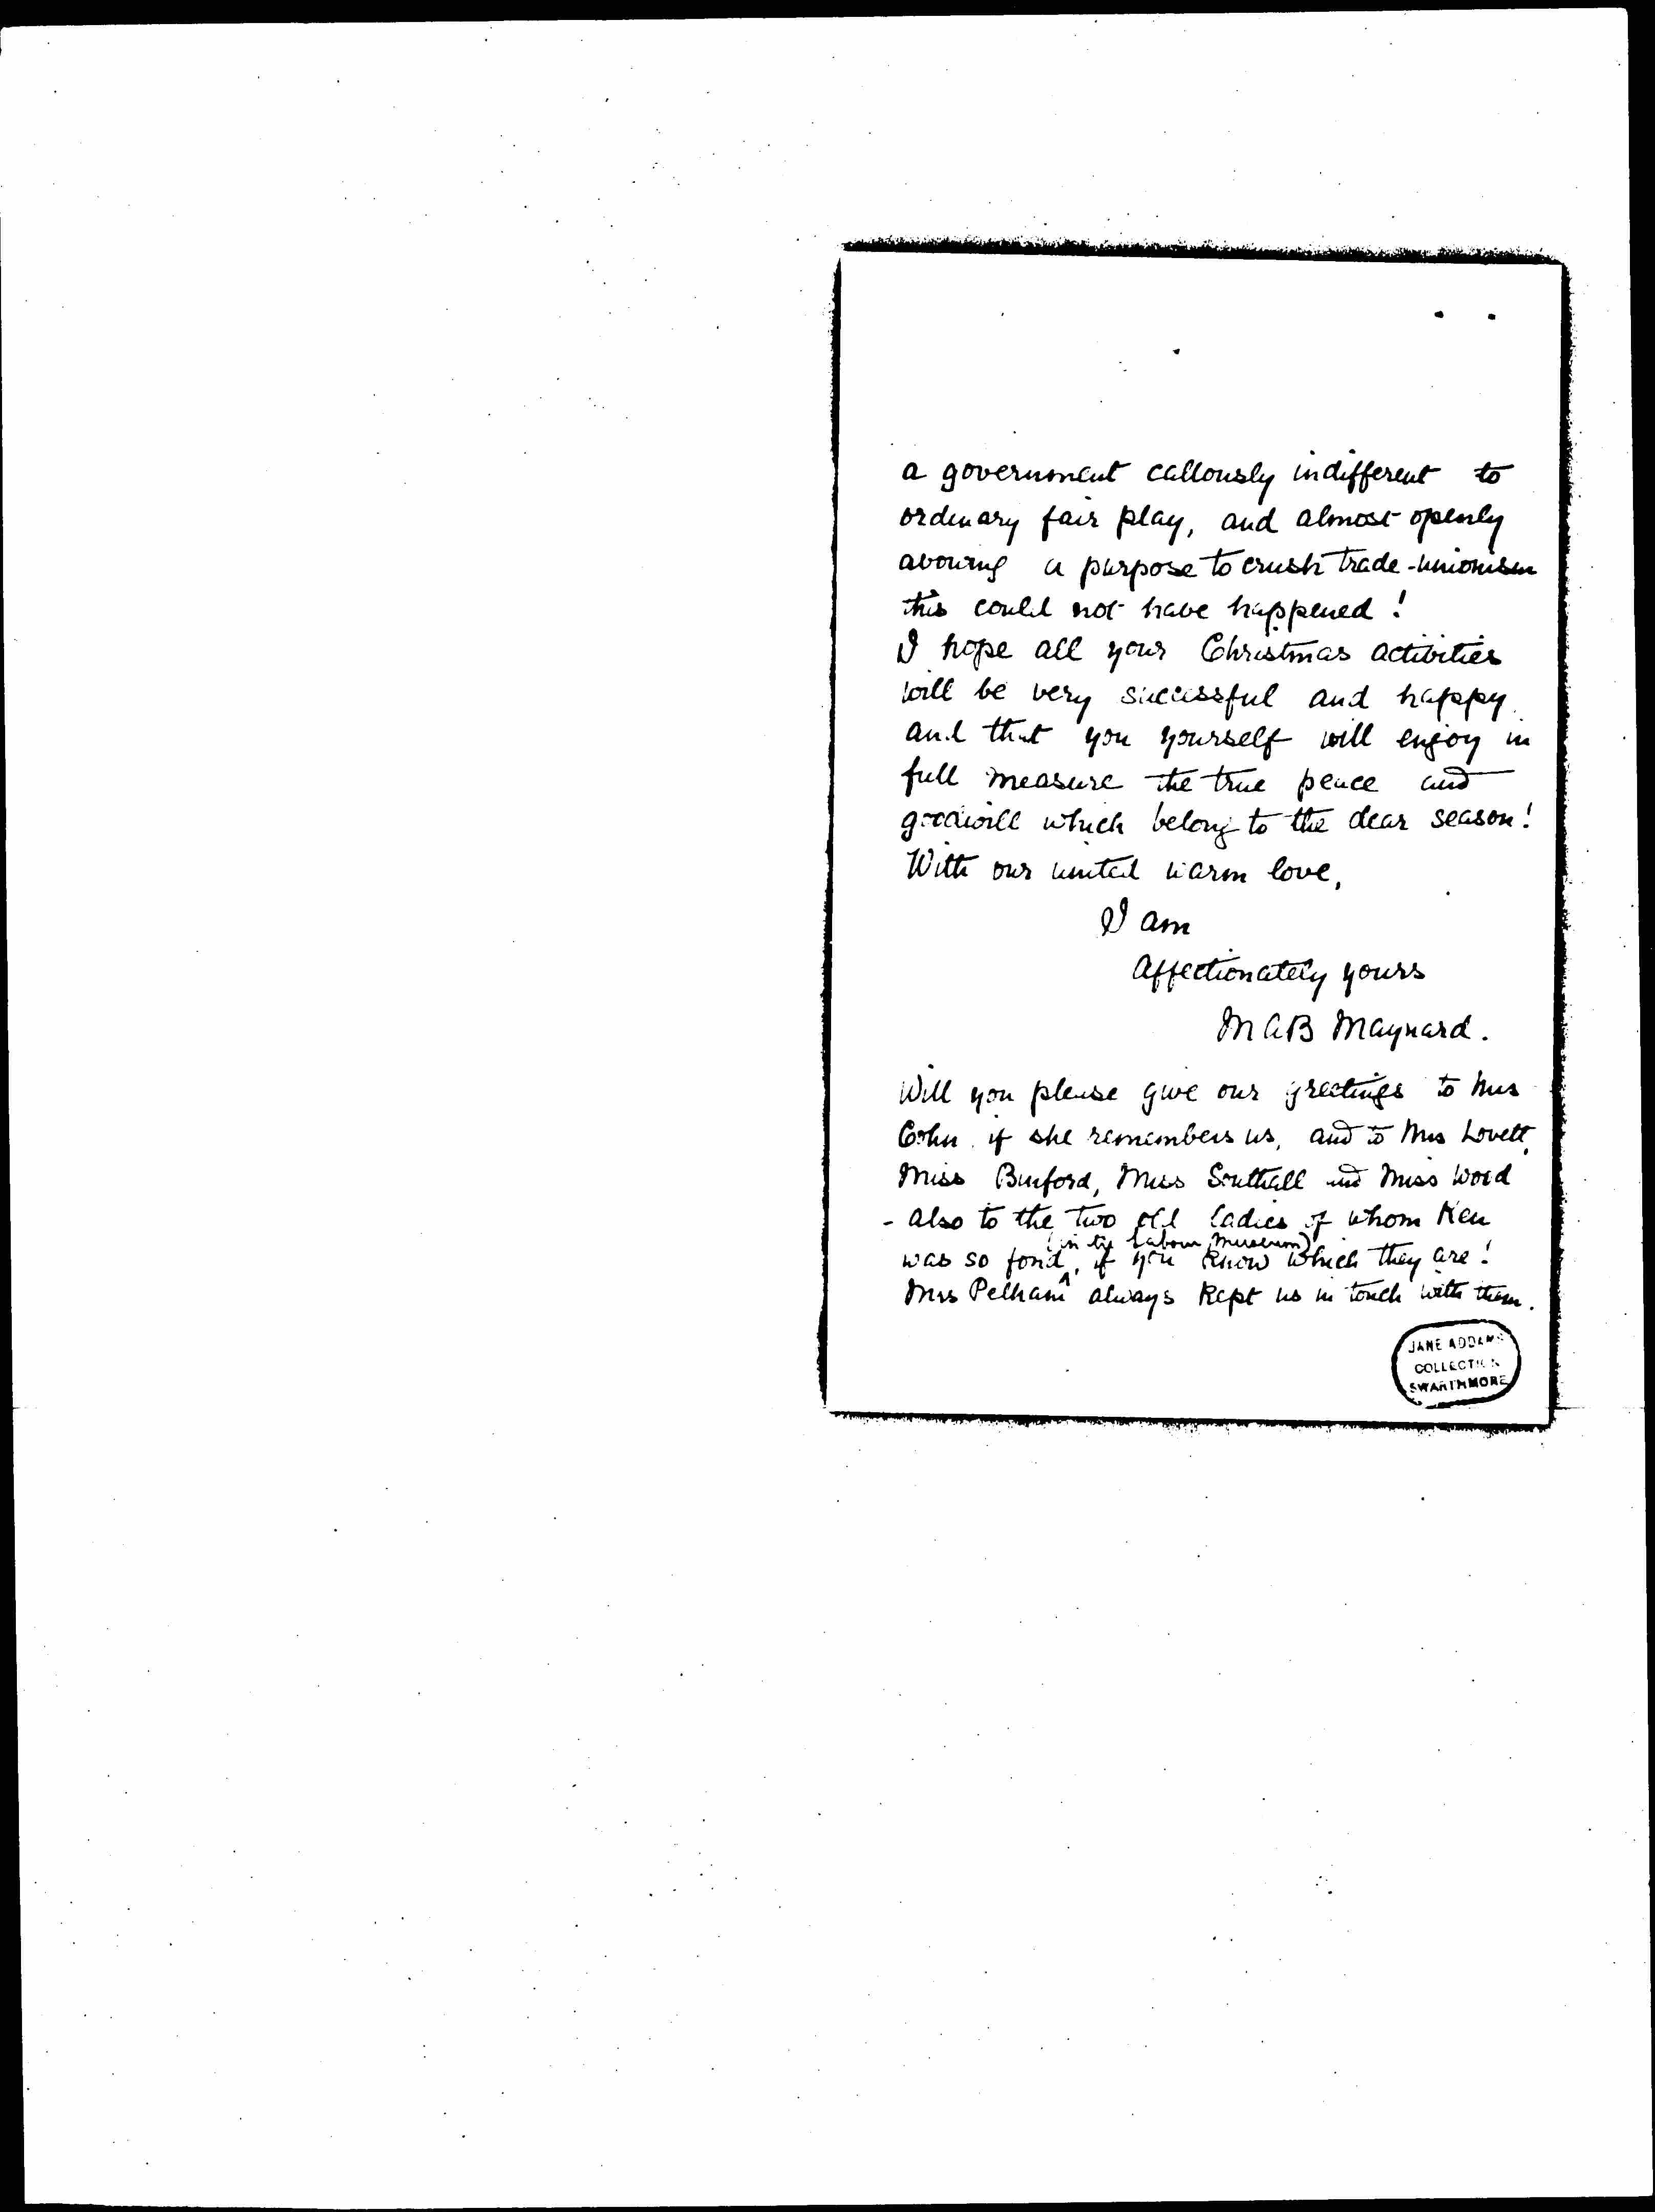 a government callously indifferent to
ordinary fair play, and almost openly
avowing a purpose to crush trade-unionism
this could not have happened!
I hope all your Christmas activities
will be very successful and happy.
and that you yourself will enjoy in
full measure the true peace and
goodwill which belong to the dear season!
With our united warm love,
I am
Affectionately yours
M A B Maynard.
Will you please give our greetings to Mrs
Cohn if she remembers us, and to Mrs Lovett,
Miss Binford, Miss Southall and Miss Wood
- also to the two old ladies of whom Ken
(in the Labour Museum)
was so fond, if you know which they are!
Mrs Pelham always kept us in touch with them.
JANE ADDAMS
COLLECTION
SWARTHMORE